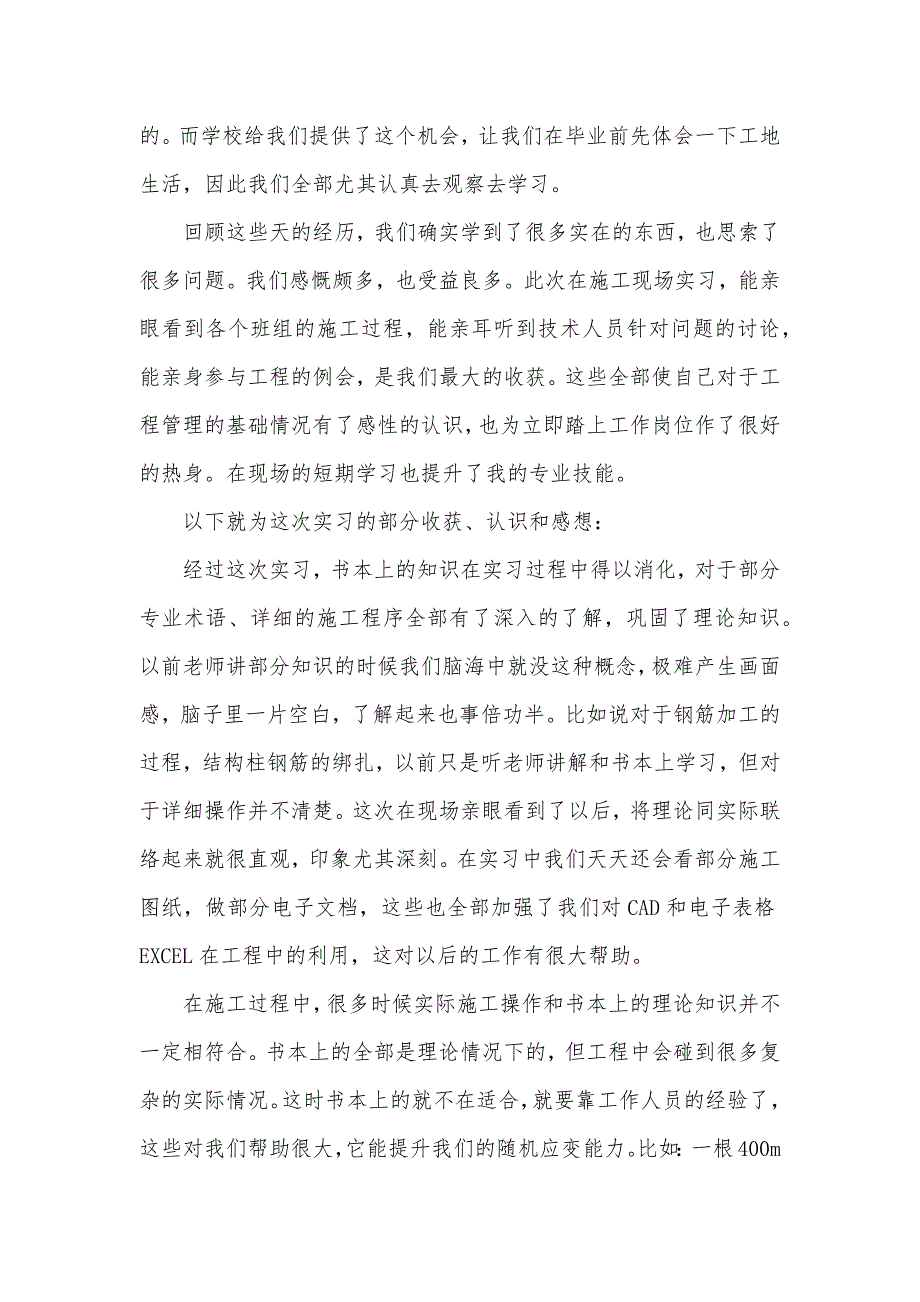 的。而学校给我们提供了这个机会，让我们在毕业前先体会一下工地
生活，因此我们全部尤其认真去观察去学习。
回顾这些天的经历，我们确实学到了很多实在的东西，也思索了
很多问题。我们感慨颇多，也受益良多。此次在施工现场实习，能亲
眼看到各个班组的施工过程，能亲耳听到技术人员针对问题的讨论，
能亲身参与工程的例会，是我们最大的收获。这些全部使自己对于工
程管理的基础情况有了感性的认识，也为立即踏上工作岗位作了很好
的热身。在现场的短期学习也提升了我的专业技能。
以下就为这次实习的部分收获、认识和感想：
经过这次实习，书本上的知识在实习过程中得以消化，对于部分
专业术语、详细的施工程序全部有了深入的了解，巩固了理论知识。
以前老师讲部分知识的时候我们脑海中就没这种概念，极难产生画面
感，脑子里一片空白，了解起来也事倍功半。比如说对于钢筋加工的
过程，结构柱钢筋的绑扎，以前只是听老师讲解和书本上学习，但对
于详细操作并不清楚。这次在现场亲眼看到了以后，将理论同实际联
络起来就很直观，印象尤其深刻。在实习中我们天天还会看部分施工
图纸，做部分电子文档，这些也全部加强了我们对 CAD 和电子表格
EXCEL 在工程中的利用，这对以后的工作有很大帮助。
在施工过程中，很多时候实际施工操作和书本上的理论知识并不
一定相符合。书本上的全部是理论情况下的，但工程中会碰到很多复
杂的实际情况。这时书本上的就不在适合，就要靠工作人员的经验了，
这些对我们帮助很大，它能提升我们的随机应变能力。比如：一根 400m